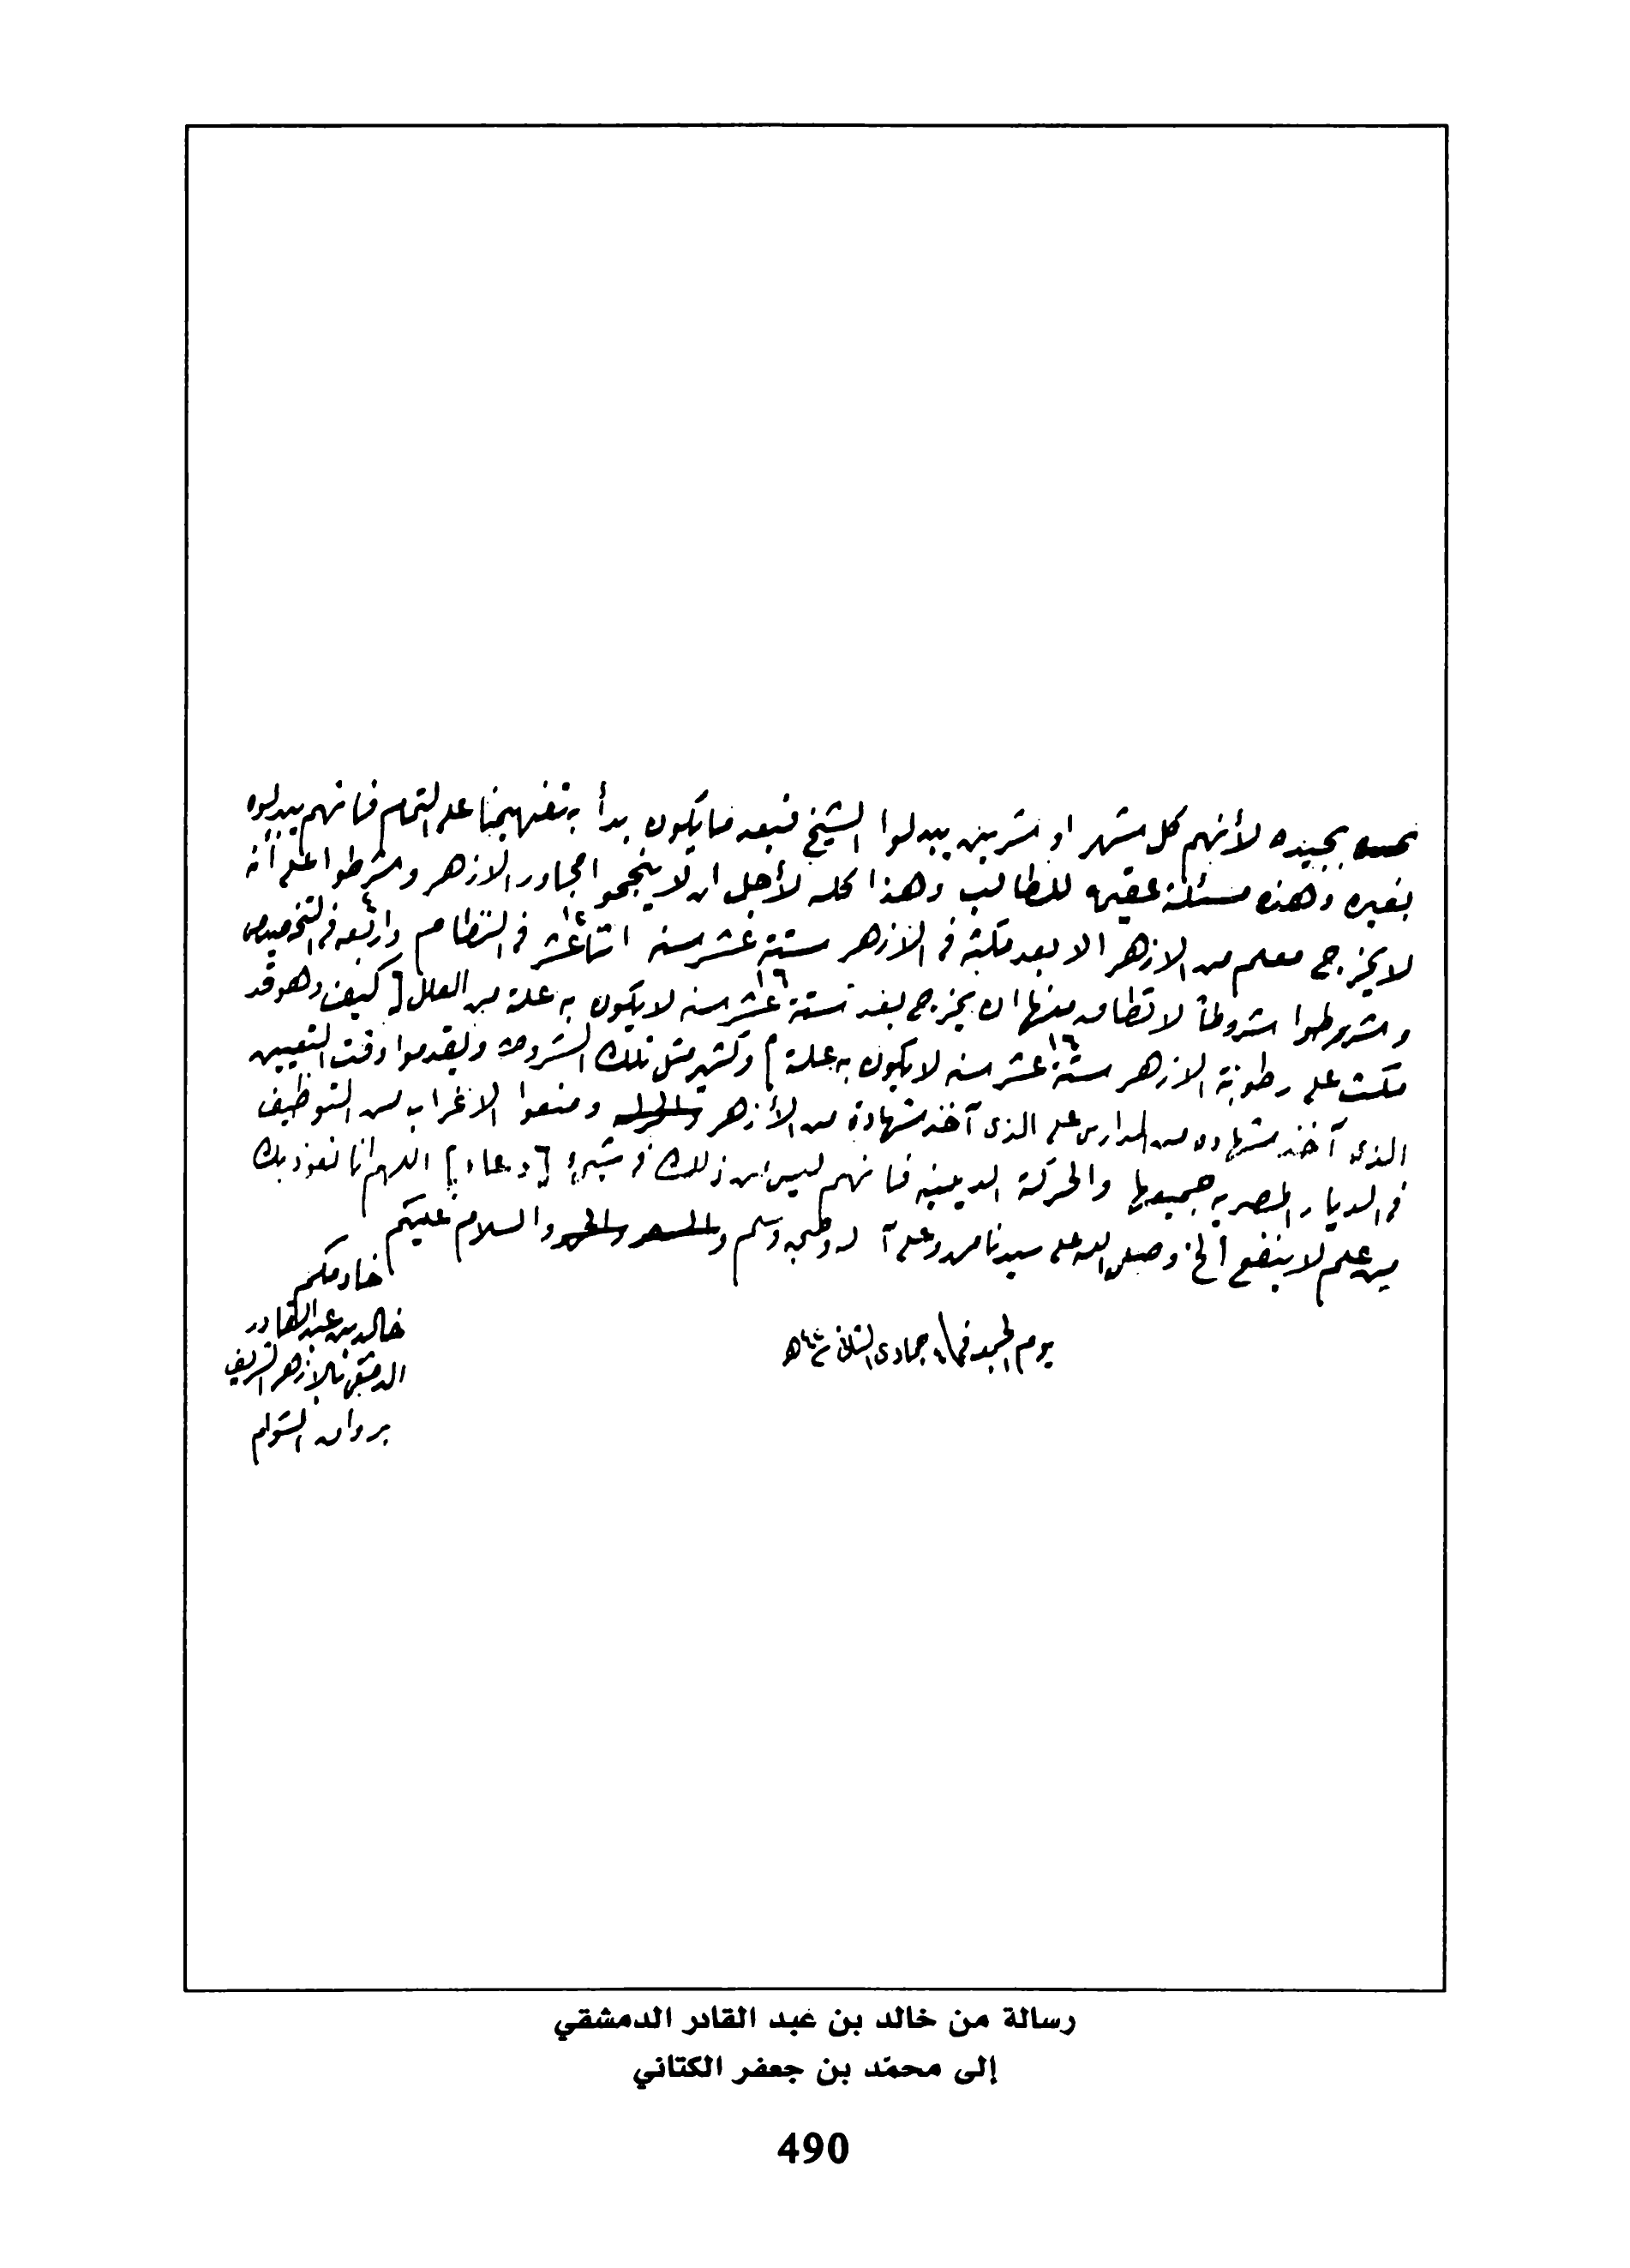 بجيده لأنهم كل شهر او شهرين يبدلوا الشيخ فبعد ما يكون بدأ بتفهيمنا على التمام فانهم يبدلوه
بغيره وهذه مسئلة عقيمه للطالب وهذا كله لأجل ان لا ينجحوا مجاور الازهر وشرطوا على أنه
لا يخرج معلم من الازهر الا بعد مكثه في الازهر ستة عشر سنه ١٢ اثنا عشر في النظام و٤ اربعه في التخصيص
وشرطوا شروطاً لا تطاق منها ان يخرج بعد ١٦ ستة عشر سنه لا يكون به علة من العلل [ كيف وهو قد
مكث على رطوبة الازهر ١٦ ستة عشر سنه لا يكون به علة ] وكثير مثل تلك الشروط ويقدموا وقت التعيين
الذي آخذ شهاده من المدارس على الذي آخذ شهادة من الأزهر ومنعوا الاغراب من التوظيف
في الديار المصريه جميعها والحركة الدينيه فانهم ليس من ذلك في شيء [ دعاء ] اللهم انا نعوذ بك
من علم لا ينفع الخ وصلى الله على سيدنا محمد وعلى آله وصحبه وسلم والسلام عليكم
خادمكم
خالد بن عبد القادر
الدمشقي بالازهر الشريف
برواق الشوام
يوم الجمعه في جمادى الثاني ٤٤ هـ
رسالة من خالد بن عبد القادر الدمشقي
إلى محمّد بن جعفر الكتاني
490